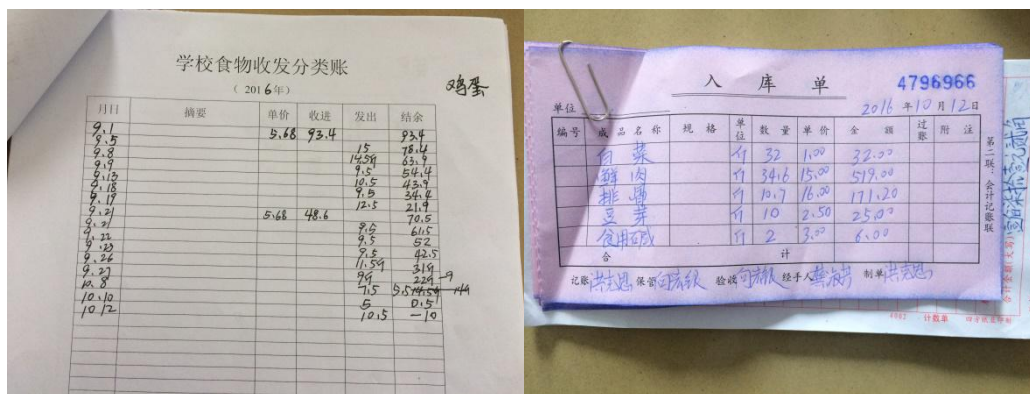 学校食物收发分类账
( 2016年)
鸡蛋
月日 摘要 单价 收进 发出 结余
9.1 5.68 93.4 93.4
9.5 15 78.4
9.8 63.9
9.9 9.5 54.4
9.13 10.5 43.9
9.18 9.5 34.4
9.19 12.5 21.9
9.21 5.68 48.6 70.5
9.21 9.5 61.5
9.22 9.5 52
9.23 9.5 42.5
9.26
9.27
10.8 7.5
10.10 5 0.5
10.12 10.5 -10
入库单
4796966
单位
2016年10月12日
编号 成品名称 规格 单位 数量 单价 金额 过账 附注
白菜 斤 32 1.00 32.00
鲜肉 斤 34.6 15.00 519.00
排骨 斤 10.7 16.00 171.20
豆芽 斤 10 2.50 25.00
食用碱 斤 2 3.00 6.00
合计
记账 洪志思 保管 验收 经手人 制单 洪志思
第二联：会计记账联
4002 计数单